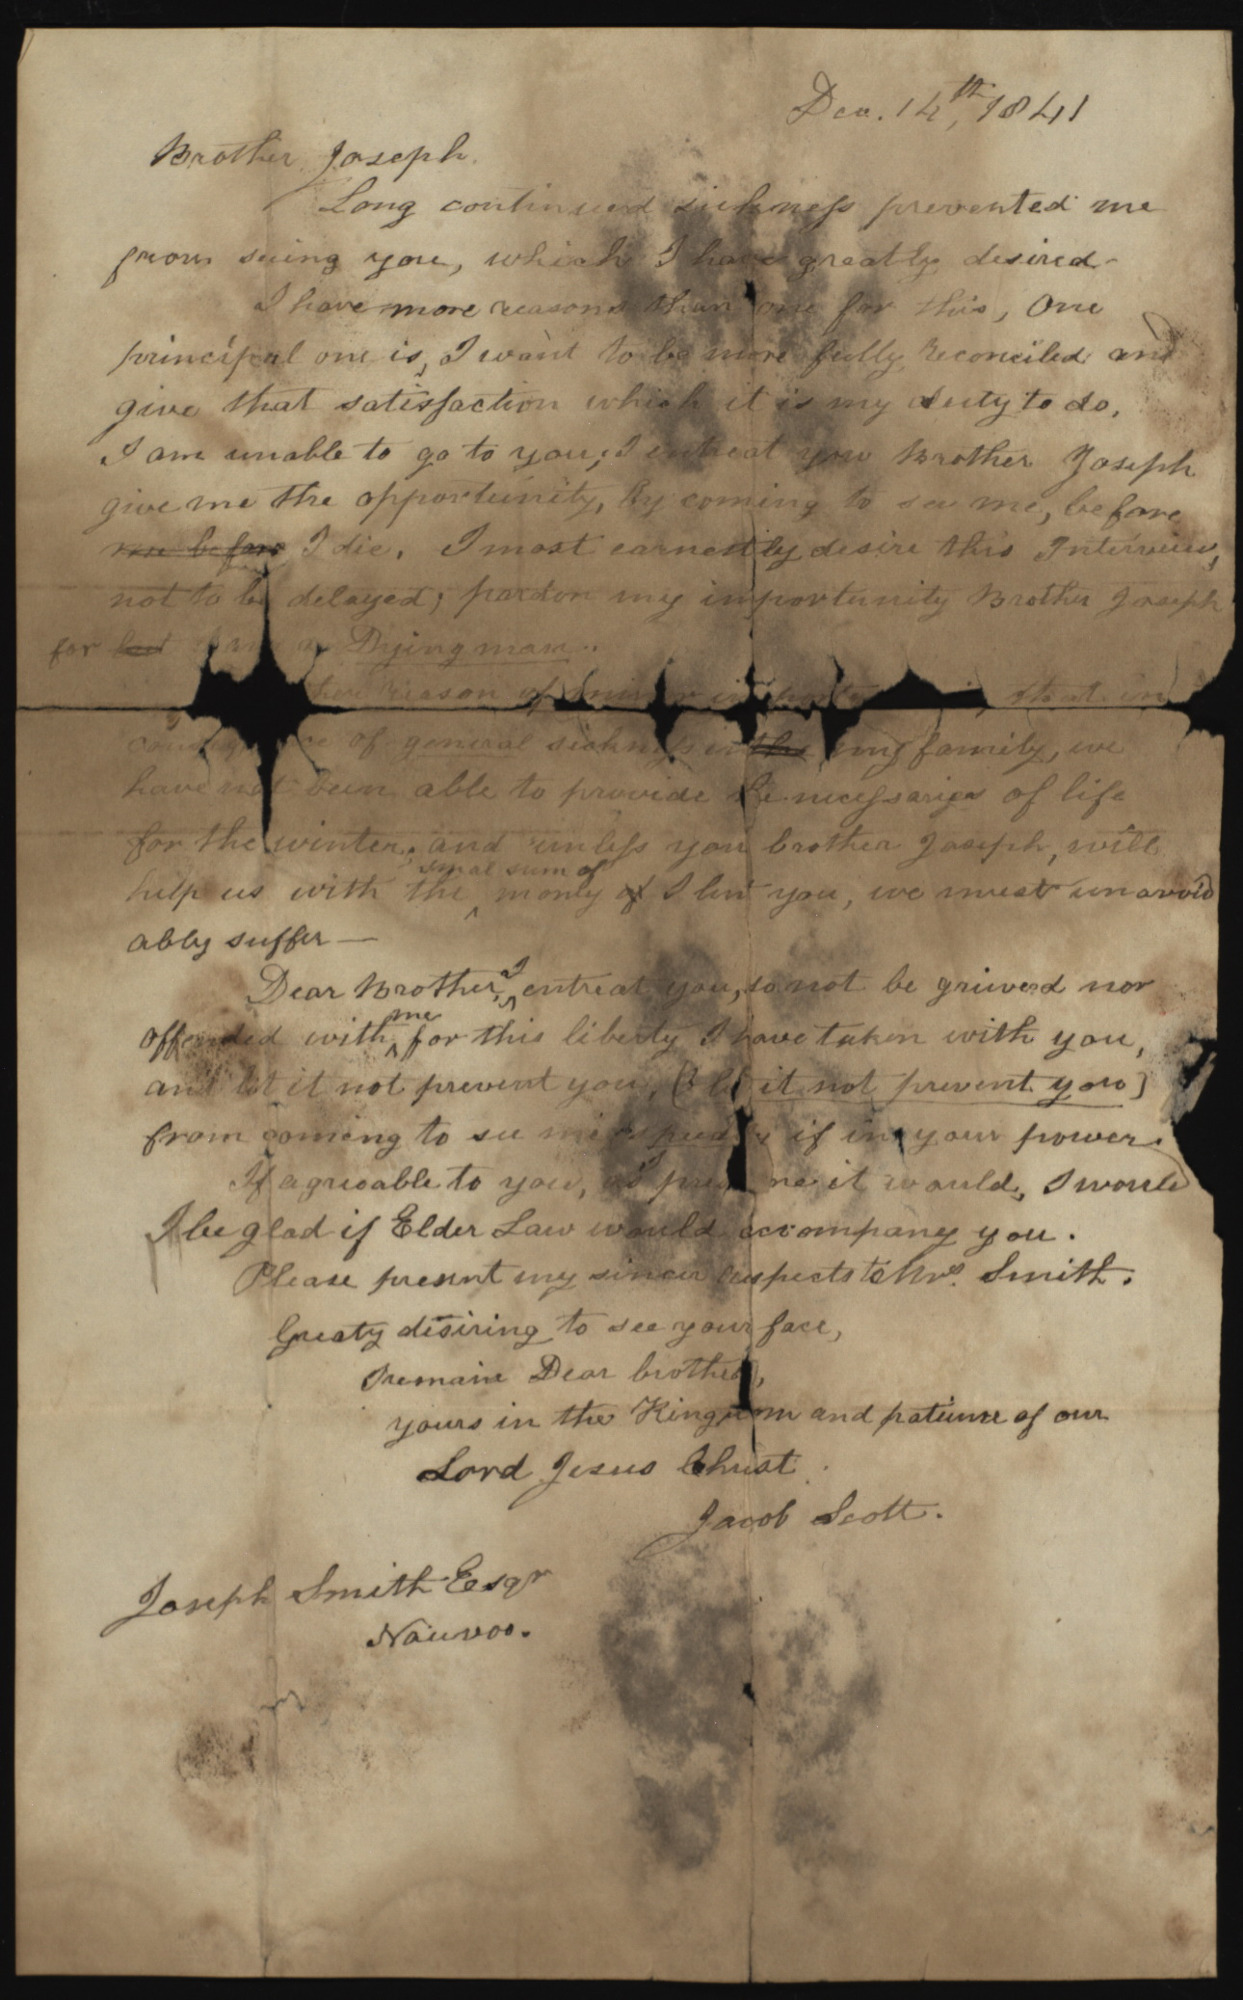 Dec. 14th, 1841
Brother Joseph.
Long continued sickness prevented me
from seing you, which I have greatly desired.
I have more reasons than one for this, One
principal one is, I want to be more fully reconciled and
give that satisfaction which it is my duty to do.
I am unable to go to you, I entreat you Brother Joseph
give me the opportunity, by coming to see me, before
me before I die. I most earnestly desire this Interview,
not to be delayed; pardon my importunity Brother Joseph
for a Dying man.
reason of that in
of general sickness in the my family, we
have not been able to provide the necessaries of life
for the winter, and unless you brother Joseph, will
help us with the smal sum of money of I lent you, we must unavoid
ably suffer —
Dear Brother, I entreat you, do not be grieved nor
offended with me for this liberty I have taken with you,
and let it not prevent you, (let it not prevent you)
from coming to see me if in your power.
If agreable to you, as I presume it would, I would
I be glad if Elder Law would accompany you.
Please present my sincer respects to Mrs. Smith.
Greaty desiring to see your face,
I remain Dear brother,
yours in the Kingdom and patience of our
Lord Jesus Christ.
Jacob Scott.
Joseph Smith Esqr
Nauvoo.